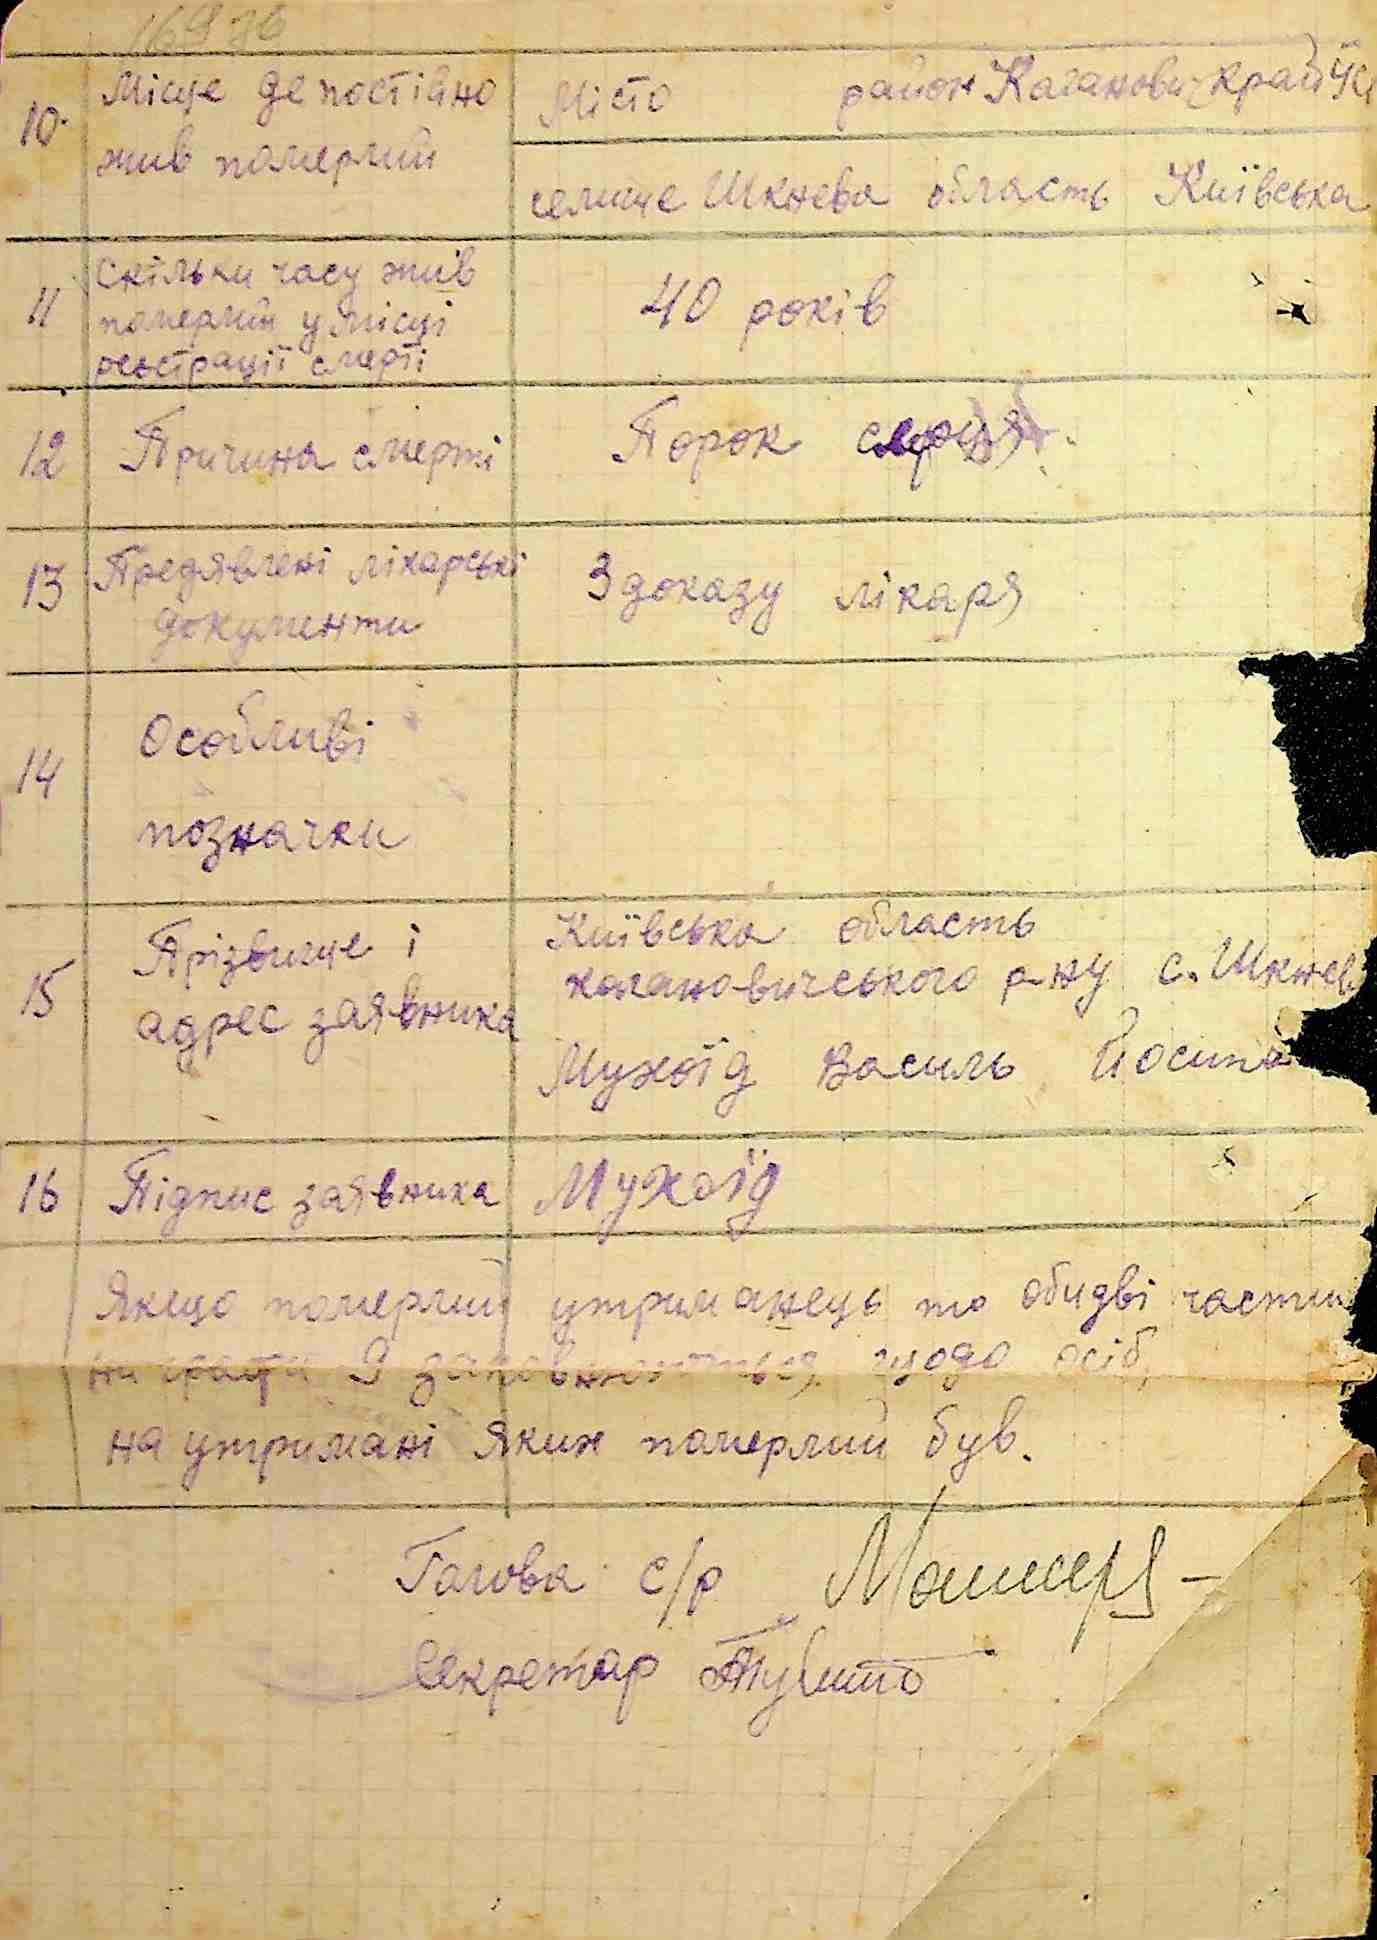 10. Місце де постійно
жив памерлий
Місто район Каганович край УК
селище Шкнева область Київська
11 Скільки часу жив
памерлий у місці
реєстрації смерті
40 років
12 Причина смерті
Порок серця
13 Предявлені лікарські
документи
З доказу лікаря
14 Особливі
позначки
15 Прізвище і
адрес заявника
Київська область
кагановичського р-ну с. Шкнев
Мухоїд Василь Йосипо
16 Підпис заявника
Мухоїд
Якщо памерлий утриманець то обидві части
ни графи 9 заповнюються щодо осіб,
на утримані яких памерлий був.
Голова с/р
Секретар